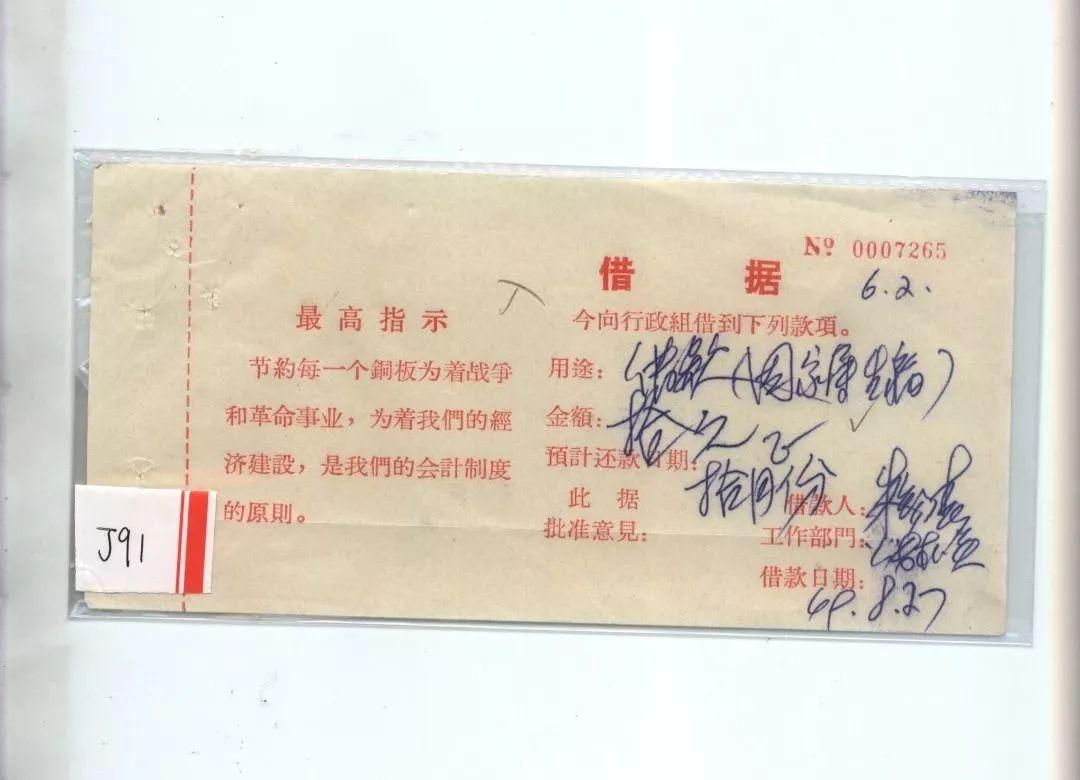 № 0007265
借 据
6.2.
最高指示
节約每一个銅板为着战爭
和革命事业，为着我們的經
济建設，是我們的会計制度
的原則。
今向行政組借到下列款項。
用途：借款（因家庭生活）
金額：拾元正
預計还款日期：拾月份
此 据
批准意見：
借款人：朱
工作部門：
借款日期：69.8.27
J91